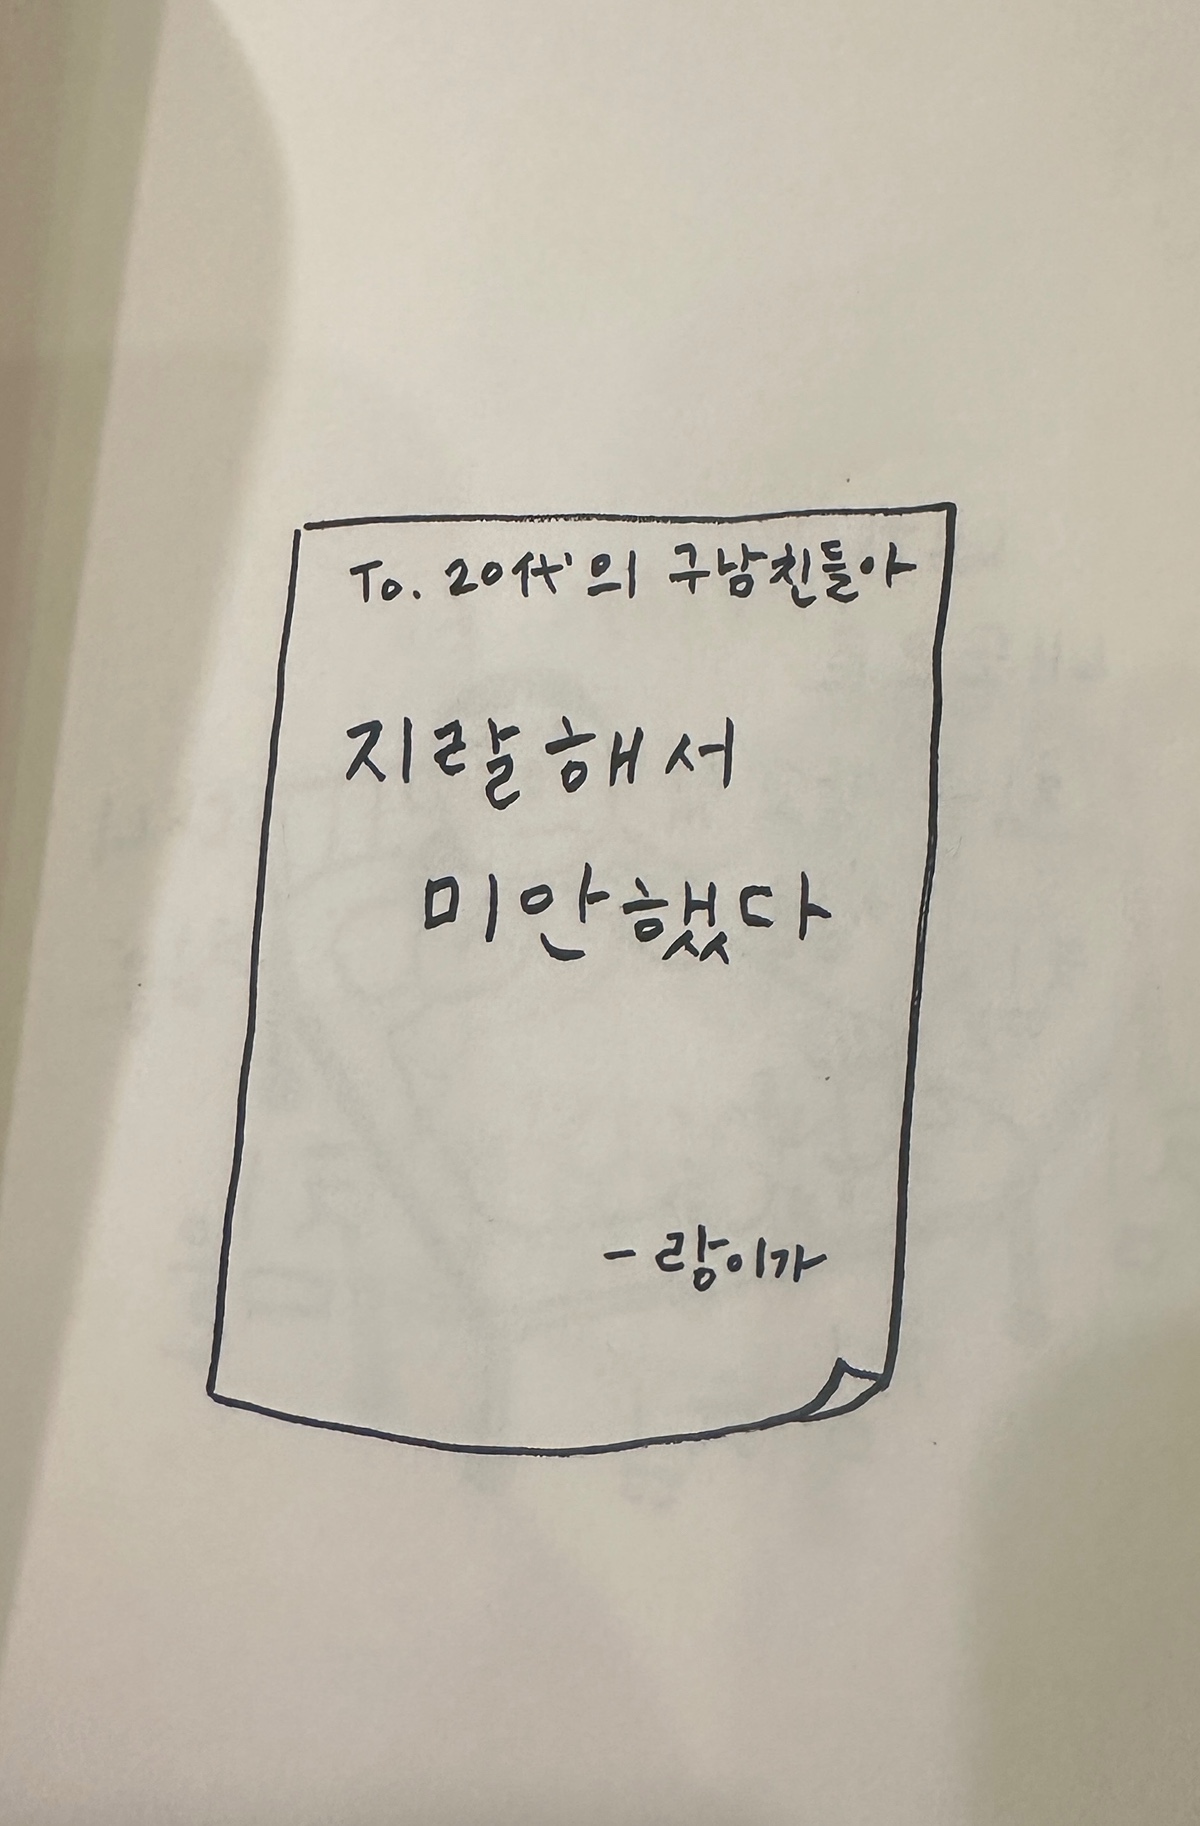 To. 20代의 구남친들아
지랄해서
미안했다
- 랑이가